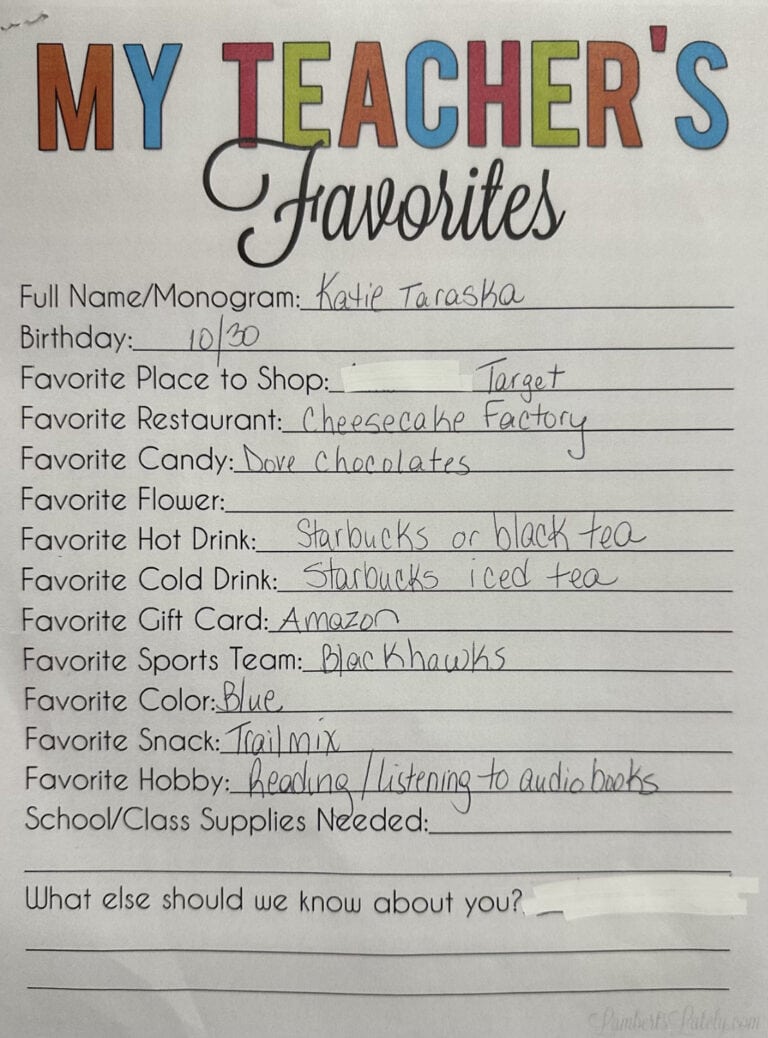 MY TEACHER'S
Favorites
Full Name/Monogram: Katie Taraska
Birthday: 10/30
Favorite Place to Shop: Target
Favorite Restaurant: Cheesecake Factory
Favorite Candy: Dove Chocolates
Favorite Flower:
Favorite Hot Drink: Starbucks or black tea
Favorite Cold Drink: Starbucks iced tea
Favorite Gift Card: Amazon
Favorite Sports Team: Blackhawks
Favorite Color: Blue
Favorite Snack: Trail mix
Favorite Hobby: Reading/listening to audio books
School/Class Supplies Needed:
What else should we know about you?
LambertsLately.com